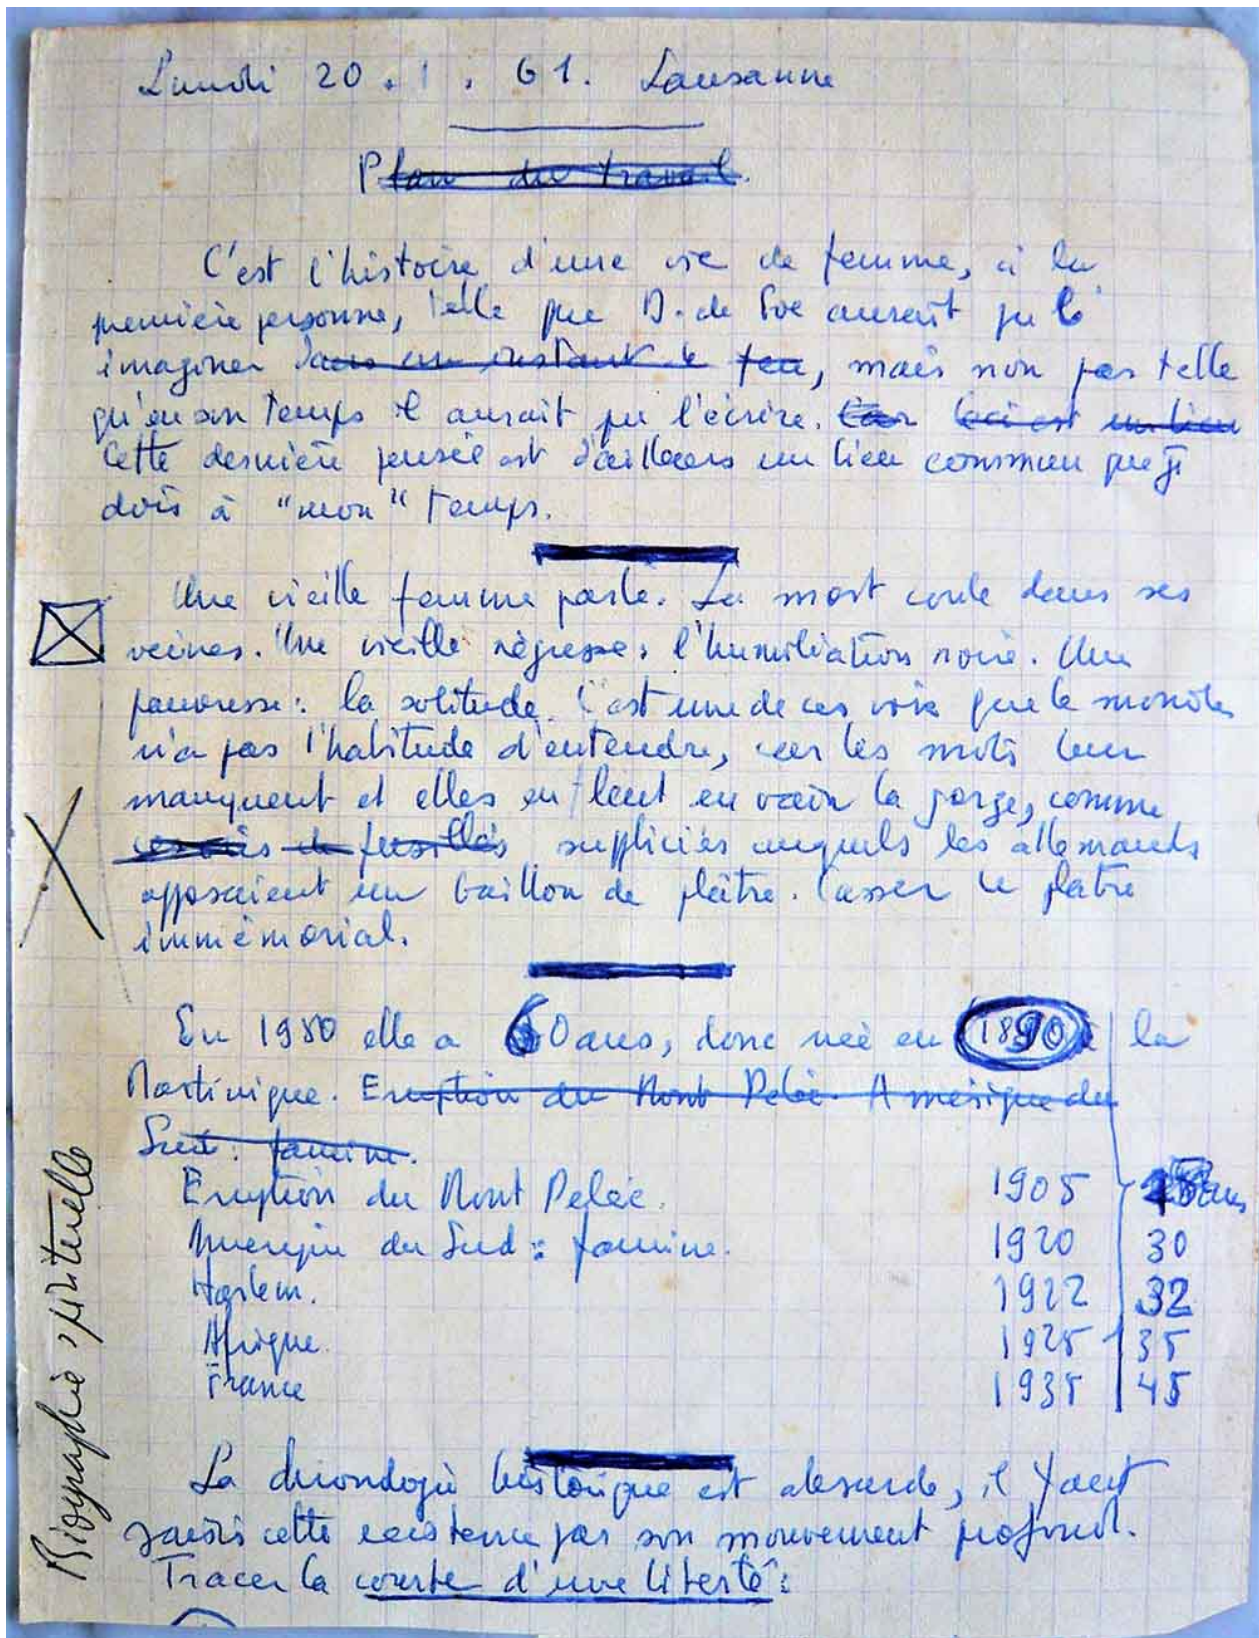 Lundi 20.1.61. Lausanne
Plan du travail.
C'est l'histoire d'une vie de femme, à la
première personne, telle que D. de Foe aurait pu l'
imaginer dans un instant de feu, mais non pas telle
qu'en son temps il aurait pu l'écrire. Car Ceci est un lieu
Cette dernière pensée est d'ailleurs un lieu commun que je
dois à "mon" temps.
Une vieille femme parle. La mort coule dans ses
veines. Une vieille négresse : l'humiliation noire. Une
pauvresse : la solitude. C'est une de ces voix que le monde
n'a pas l'habitude d'entendre, car les mots leur
manquent et elles enflent en vain la gorge, comme
fusillés suppliciés auxquels les allemands
apposaient un baillon de plâtre. Casser le plâtre
immémorial.
En 1950 elle a 60 ans, donc née en 1890 à la
Martinique. Eruption du Mont Pelée. Amérique du
Sud : famine.
Eruption du Mont Pelée. 1905 15 ans
Amérique du Sud : famine. 1920 30
Harlem. 1922 32
Afrique. 1925 35
France 1935 45
La chronologie historique est absurde, il faut
saisir cette existence par son mouvement profond.
Tracer la courbe d'une liberté :
Biographie spirituelle